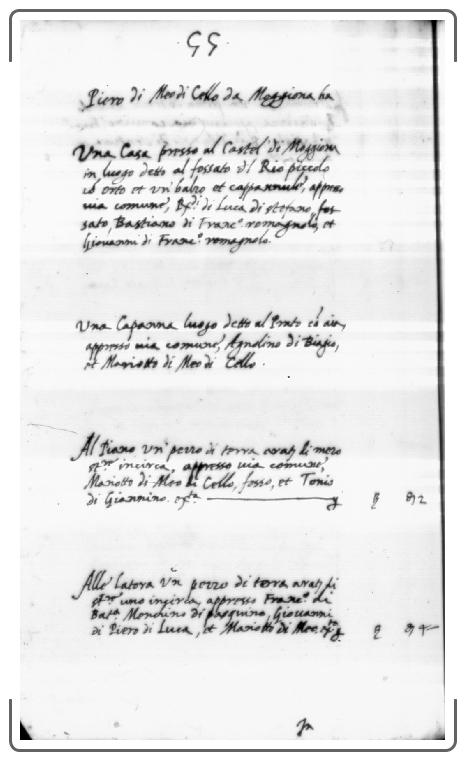 55
Piero di Meo di Cello da Moggiona ha
Una Casa presso al Castel di Moggiona
in luogo detto al fossato del Rio piccolo
cō orto et un balzo et cappannule, appresso
via comune, di Luca di stefano, fos
sato, Bastiano di Franc.º romagnolo, et
Giovanni di Franc.º romagnolo.
Una Capanna luogo detto al Prato cō aia,
appresso via comune, Agnolino di Biagio,
et Mariotto di Meo di Cello.
Al Piano un pezzo di terra di mezo
incirca, appresso via comune,
Mariotto di Meo di Cello, fosso, et Tonio
di Giannino.
Alle latora un pezzo di terra di
uno incirca, appresso Franc.º di
Bat.ª Mondino di pasquino, Giovanni
di Piero di Luca, et Mariotto di Meo.